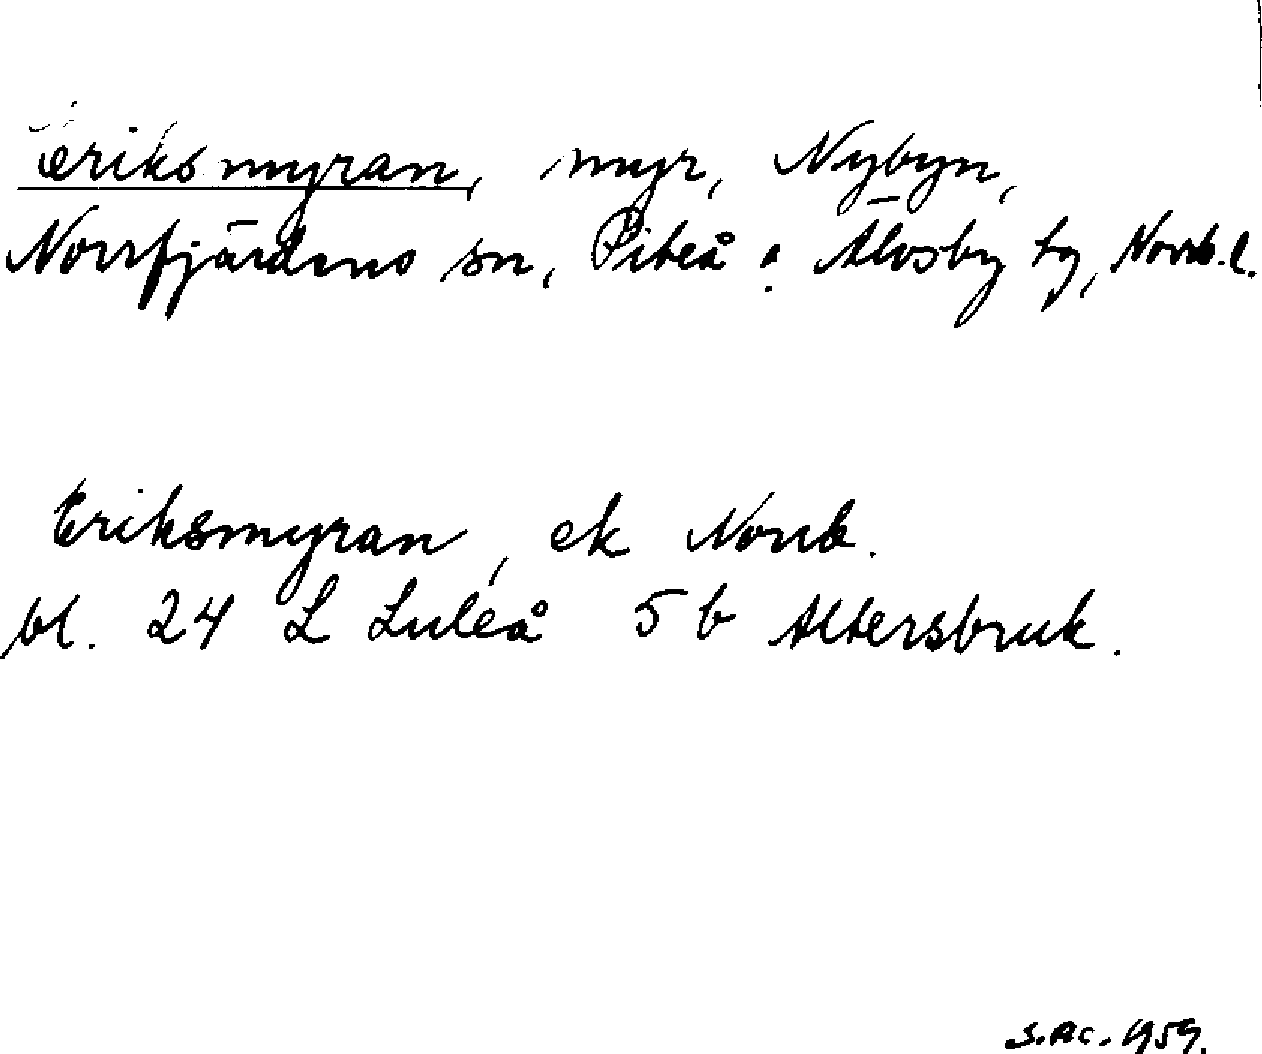 Eriksmyran, myr, Nybyn,
Norrfjärdens sn, Piteå o. Älvsby tg, Norrb. l.
Eriksmyran, ek Norrb.
bl. 24 L Luleå 5 b Altersbruk.
S. Ac. 1959.